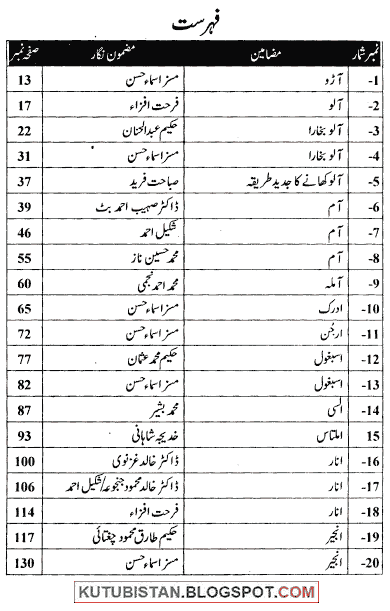 فہرست
نمبر شمار مضامین مضمون نگار صفحہ نمبر
-1 آڑو مسز اسماء حسن 13
-2 آلو فرحت افزاء 17
-3 آلو بخارا حکیم عبدالحنان 22
-4 آلو بخارا مسز اسماء حسن 31
-5 آلو کھانے کا جدید طریقہ صباحت فرید 37
-6 آم ڈاکٹر صہیب احمد بٹ 39
-7 آم شکیل احمد 46
-8 آم محمد حسین ناز 55
-9 آملہ محمد احمد نجمی 60
-10 ادرک مسز اسماء حسن 65
-11 ارجُن مسز اسماء حسن 72
-12 اسبغول حکیم محمد عثمان 77
-13 اسبغول مسز اسماء حسن 82
-14 السی محمد بشیر 87
15 املتاس خدیجہ شاہانی 93
-16 انار ڈاکٹر خالد غزنوی 100
-17 انار ڈاکٹر خالد محمود جنجوعہ/شکیل احمد 106
-18 انار فرحت افزاء 114
-19 انجیر حکیم طارق محمود چغتائی 117
-20 انجیر مسز اسماء حسن 130
KUTUBISTAN.BLOGSPOT.COM